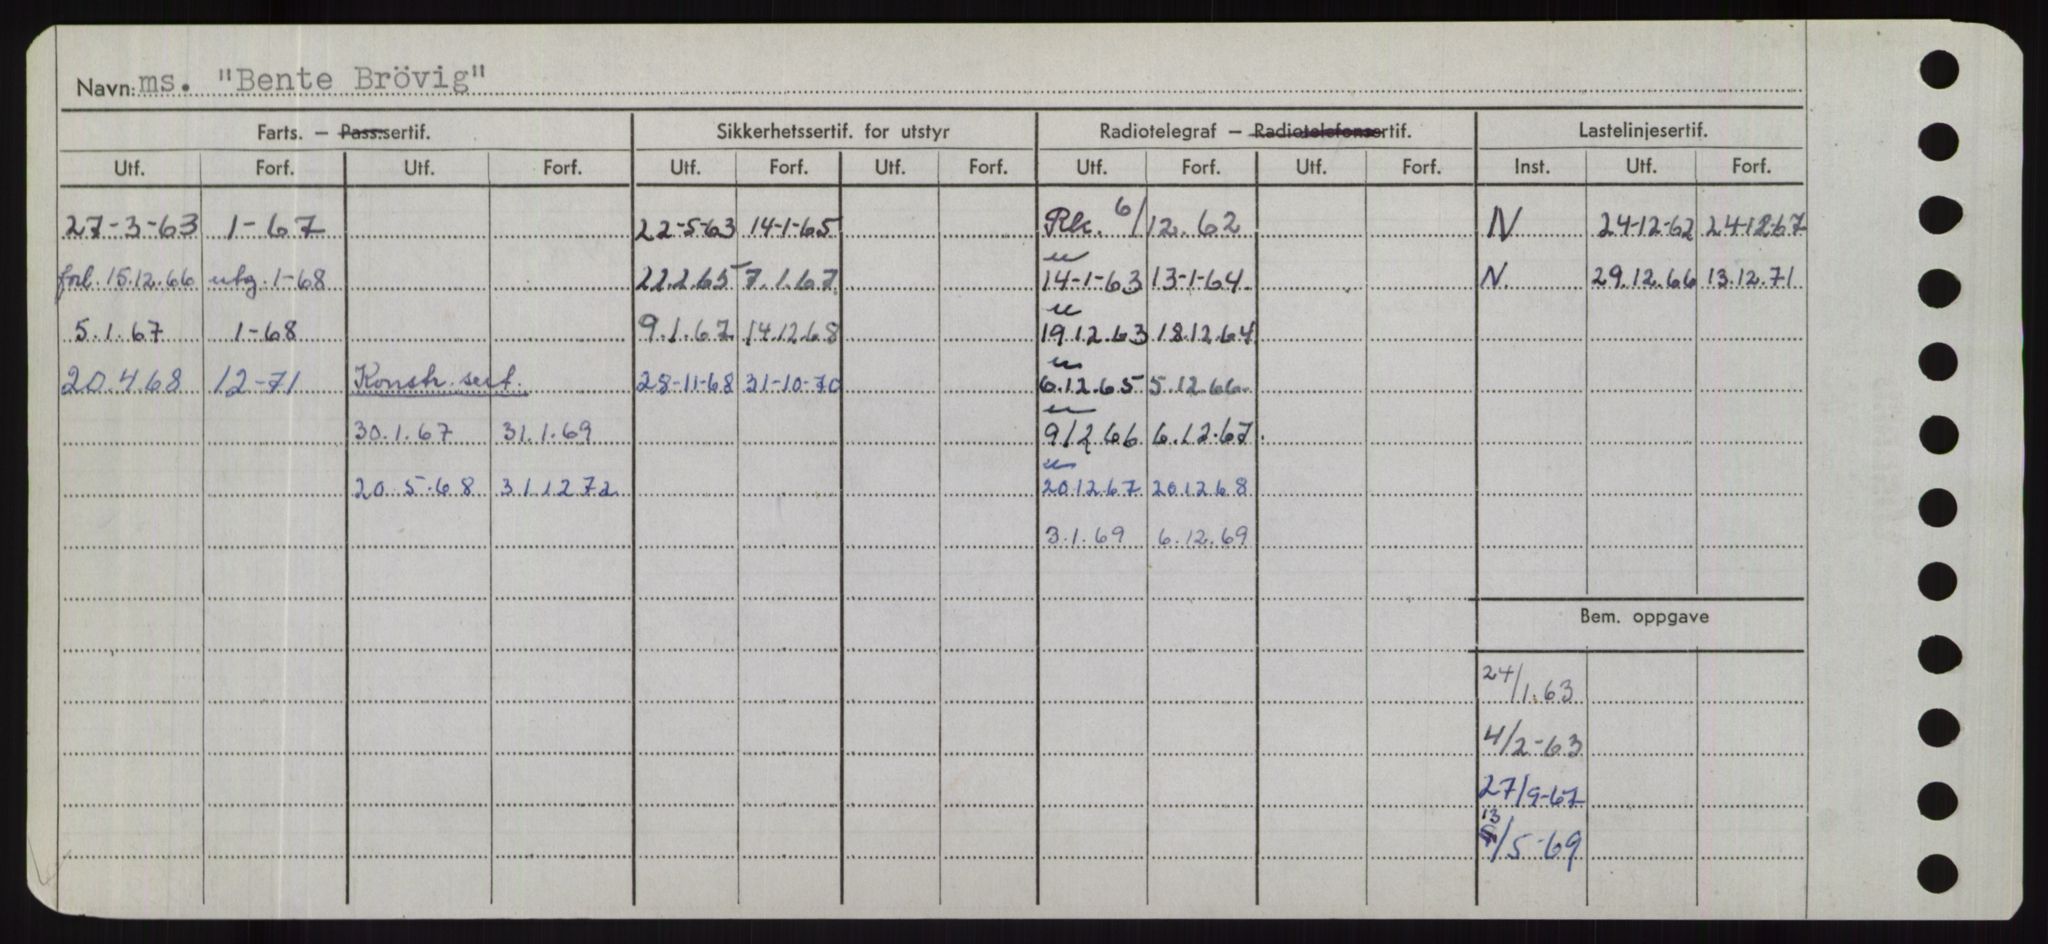 Navn: ms. "Bente Brövig"
Farts. – Pass.sertif. Sikkerhetssertif. for utstyr Radiotelegraf – Radiotelefonsertif. Lastelinjesertif.
Utf. Forf. Utf. Forf. Utf. Forf. Utf. Forf. Utf. Forf. Utf. Forf. Inst. Utf. Forf.
27-3-63 1-67 22-5-63 14-1-65 6/12.62 N 24-12-62 24-12-67
forl. 15.12.66 utg. 1-68 22.2.65 7.1.67 " 14-1-63 13-1-64 N. 29.12.66 13.12.71
5.1.67 1-68 9.1.67 14.12.68 " 19.12.63 18.12.64
20.4.68 12-71 Konstr. sert. 28-11-68 31-10-70 " 6.12.65 5.12.66
30.1.67 31.1.69 " 9/12 66 6.12.67.
20.5.68 31.12.72 " 20.12.67 20.12.68
3.1.69 6.12.69
Bem. oppgave
24/1.63
4/2-63
27/9-67
13/5-69